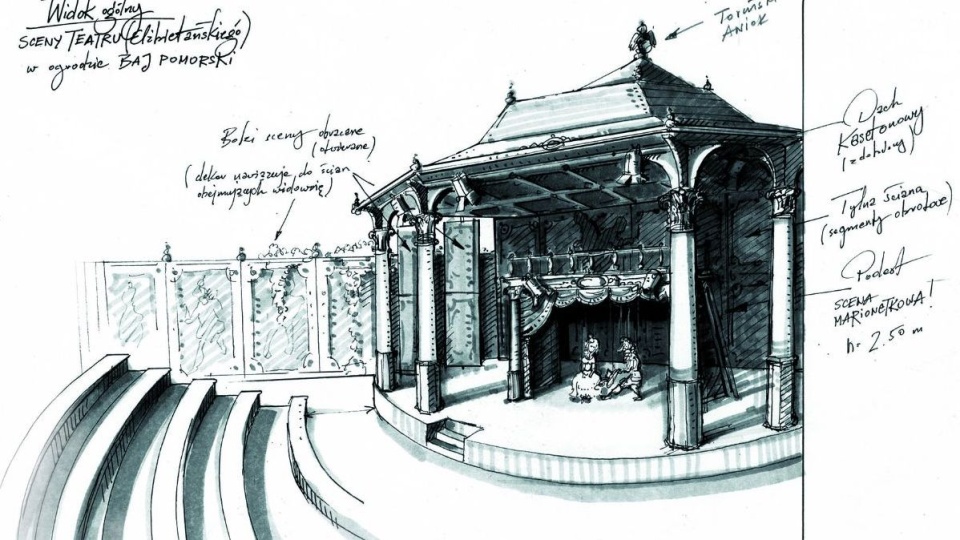 Widok ogólny
SCENY TEATRU (Elżbietańskiego)
w ogrodzie BAJ POMORSKI
Toruński
ANIOŁ
Boki sceny obracane
(otwierane)
(dekor nawiązuje do ścian
obejmujących widownię)
Dach
Kasetonowy
Tylna ściana
(segmenty obrotowe)
Podest
SCENA
MARIONETKOWA!
h= 2.50 m